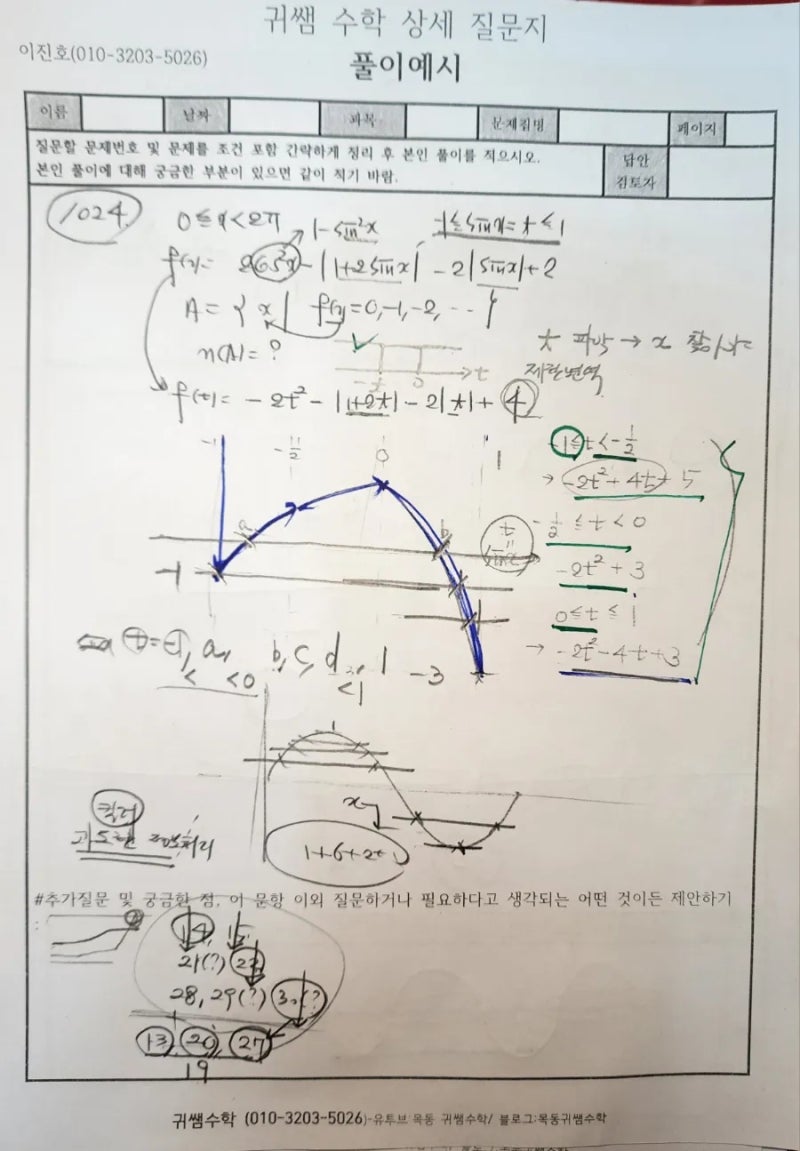 귀쌤 수학 상세 질문지
이진호(010-3203-5026)
풀이예시
이름 날짜 과목 문제집명 페이지
질문할 문제번호 및 문제를 조건 포함 간략하게 정리 후 본인 풀이를 적으시오.
본인 풀이에 대해 궁금한 부분이 있으면 같이 적기 바람.
답안
검토자
1024.
0≤x<2π
1-sin²x
-1≤sinx=t≤1
f(x)= 2cos²x-|1+2sinx|-2|sinx|+2
A={x| f(x)=0,-1,-2,...}
n(A)=?
t 파악→x 찾기
제한변역
t
f(t)= -2t²-|1+2t|-2|t|+4
-1 -1/2 0 1
-1≤t<-1/2
→ -2t²+4t+5
-1/2≤t<0
-2t²+3
0≤t≤1
→ -2t²-4t+3
t
=
sinx
a b
-1
t=-1, a, b, c, d, 1 -3
< <0 <1
1
x
킬러
1+6+2+1
#추가질문 및 궁금한 점, 이 문항 이외 질문하거나 필요하다고 생각되는 어떤 것이든 제안하기
14, 15
21(?) 22
28, 29(?) 30(?)
13, 20, 27
19
귀쌤수학 (010-3203-5026)-유투브:목동 귀쌤수학/ 블로그:목동귀쌤수학